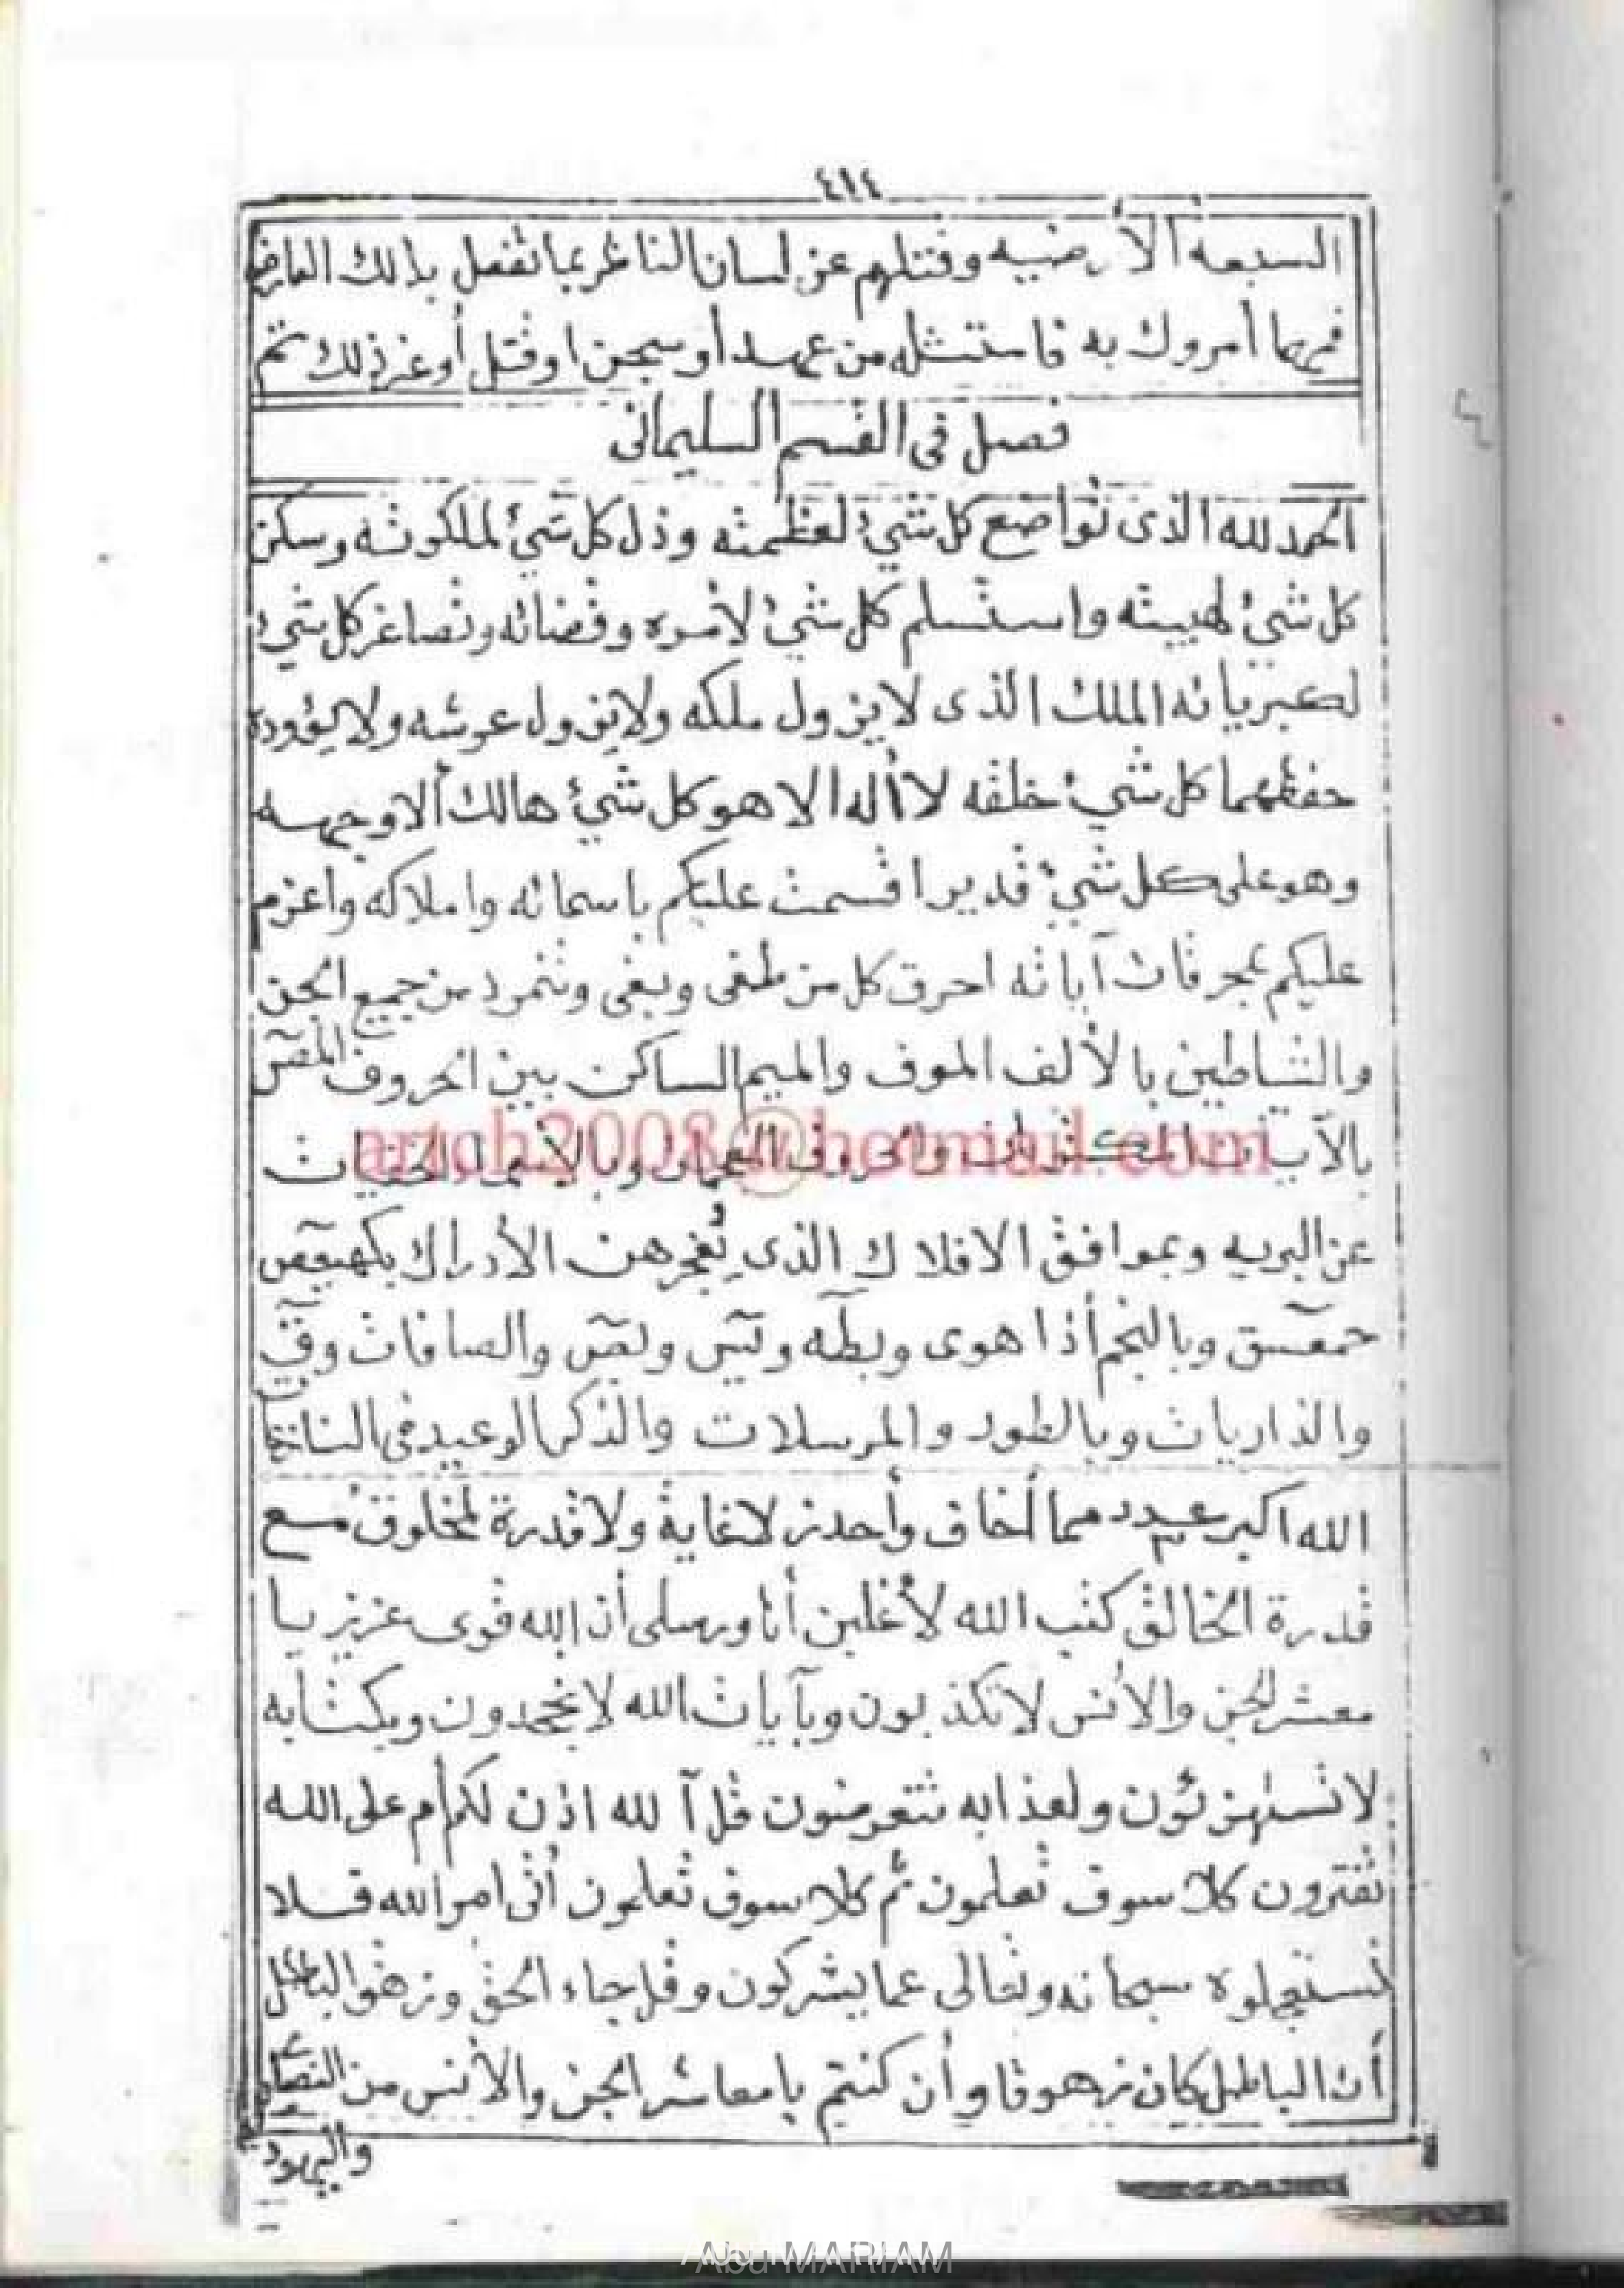 ٤١٤
السبعة الأرضيه وقتلهم عن لسان الناظر بما تفعل بذلك العارض
فمهما أمروك به فامتثله من عهد أو سجن او قتل أو غير ذلك تم
فصل في القسم السليمانى
الحمد لله الذى تواضع كل شئ لعظمته وذل كل شئ لملكوته وسكن
كل شئ لهيبته واستسلم كل شئ لأمره وقضائه وتصاغر كل شئ
لكبريائه الملك الذى لا يزول ملكه ولا يزول عرشه ولا يؤوده
حفظهما كل شئ خلقه لا أله الا هو كل شئ هالك ألا وجهه
وهو على كل شئ قدير اقسمت عليكم باسمائه واملاكه واعزم
عليكم بمحرقات آياته احرق كل من طغى وبغى وتمرد من جميع الجن
والشاطين بالألف الموف والميم الساكن بين الحروف
بالآيات والحروف وبالأسما الخفيات
عن البريه وبموافق الافلاك الذى هن الأدراك بكهيعص
حمعسق وبالنجم أذا هوى وبطه ويس وبص والصافات وق
والذاريات وبالطور والمرسلات والذكر الوعيد فى
الله اكبر مما أخاف وأحذر لا غاية ولا قدرة لمخلوق مع
قدرة الخالق كتب الله لأغلبن أنا ورسلى أن الله قوى عزيز يا
معشر الجن والأنس لا تكذبون وبآيات الله لا تجحدون وبكتابه
لا تستهزئون ولعذابه تتعرضون قل آلله اذن لكم أم على الله
تفترون كلا سوف تعلمون ثم كلا سوف تعلمون أتى امر الله فلا
تستعجلوه سبحانه وتعالى عما يشركون وقل جاء الحق وزهق الباطل
أن الباطل كان زهوقا وأن كنتم يا معاشر الجن والأنس من
واليهود
artch2008@hotmail.com
Abu MARIAM